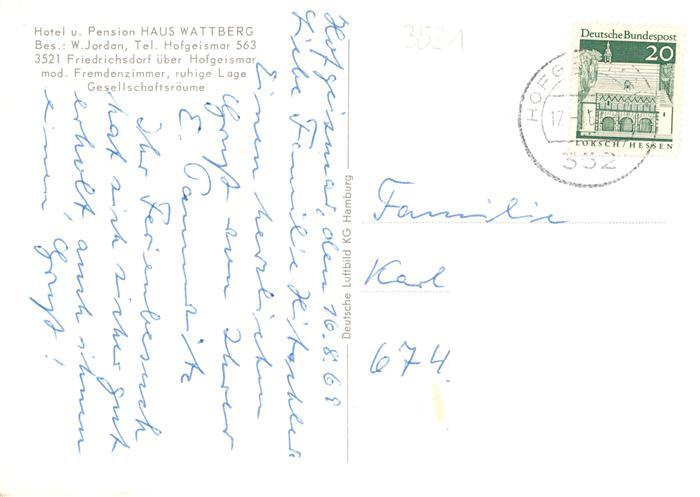 Hotel u. Pension HAUS WATTBERG
Bes.: W.Jordan, Tel. Hofgeismar 563
3521 Friedrichsdorf über Hofgeismar
mod. Fremdenzimmer, ruhige Lage
Gesellschaftsräume
Hofgeismar, den 16.8.69
Liebe Familie
Einen herzlichen
Gruß von Ihrer
E.
Ihr Ferienbesuch
hat sich sicher gut
erholt, auch ihnen
einen Gruß!
Deutsche Luftbild KG Hamburg
3521
Deutsche Bundespost
20
LORSCH/HESSEN
HOFG
17.
352
Familie
Karl
674